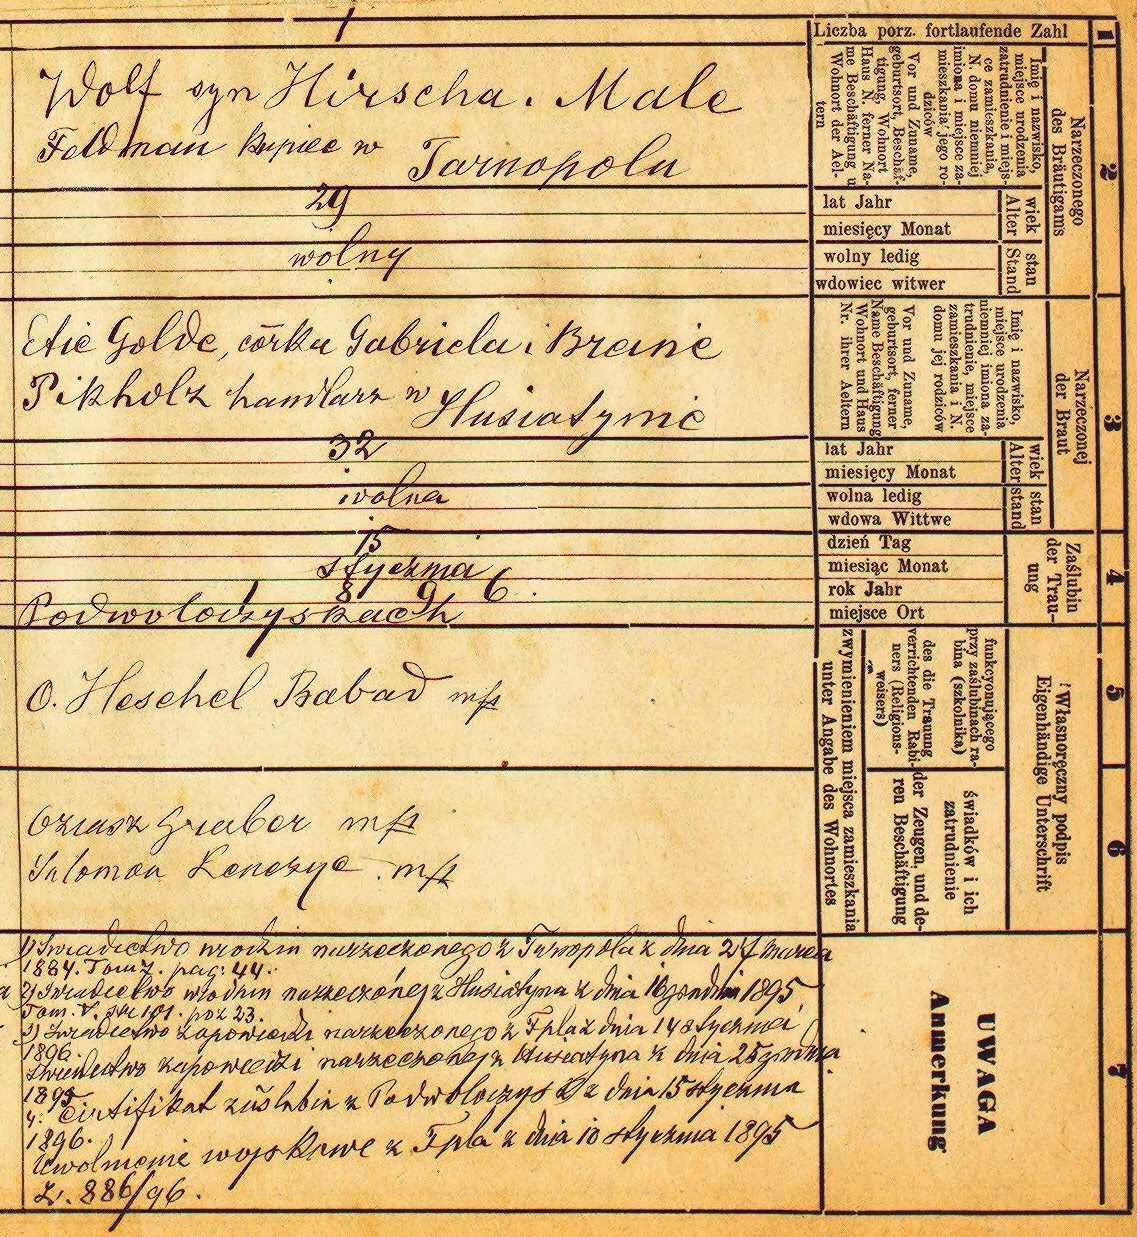 1
Wolf syn Hirscha i Male
Feldman kupiec w Tarnopolu
29
wolny
Etie Golde, córka Gabriela i Breine
Pikholz handlarz w Husiatynie
32
wolna
15
stycznia
1 8 9 6.
Podwołoczyskach
O. Heschel Babad mp
Oziasz Graber mp
Salomon Lenczyc mp
1) Świadectwo urodzin narzeczonego z Tarnopola z dnia 27 marca
1884. Tom 7. pag: 44.
2) Świadectwo urodzin narzeczonéj z Husiatyna z dnia 16 grudnia 1895
Tom. V. str 101. poz 23.
3) Świadectwo zapowiedzi narzeczonego z Tpla z dnia 14 stycznia
1896.
Świadectwo zapowiedzi narzeczonéj z Husiatyna z dnia 25 grudnia
1895
4. Certifikat zaślubin z Podwołoczysk z dnia 15 stycznia
1896.
Uwolnienie wojskowe z Tpla z dnia 10 stycznia 1895
Z. 886/96.
1
Liczba porz. fortlaufende Zahl
2
Narzeczonego
des Bräutigams
Imię i nazwisko,
miejsce urodzenia
zatrudnienie i miejs-
ce zamieszkania,
N. domu niemniej
imiona i miejsce za-
mieszkania jego ro-
dziców
Vor und Zuname,
geburtsort, Beschäf-
tigung, Wohnort
Haus N. ferner Na-
me Beschäftigung u
Wohnort der Ael-
tern
wiek
Alter
lat Jahr
miesięcy Monat
stan
Stand
wolny ledig
wdowiec witwer
3
Narzeczonej
der Braut
Imię i nazwisko,
miejsce urodzenia
niemniej imiona za-
trudnienie, miejsce
zamieszkania i N.
domu jej rodziców
Vor und Zuname,
geburtsort, ferner
Name Beschäftigung
Wohnort und Haus
Nr. ihrer Aeltern
wiek
Alter
lat Jahr
miesięcy Monat
stan
stand
wolna ledig
wdowa Wittwe
4
Zaślubin
der Trau-
ung
dzień Tag
miesiąc Monat
rok Jahr
miejsce Ort
Własnoręczny podpis
Eigenhändige Unterschrift
5
funkcyonującego
przy zaślubinach ra-
bina (szkolnika)
des die Trauung
verrichtenden Rabi-
ners (Religions-
weisers)
6
świadków i ich
zatrudnienie
der Zeugen, und de-
ren Beschäftigung
zwymienieniem miejsca zamieszkania
unter Angabe des Wohnortes
7
UWAGA
Anmerkung